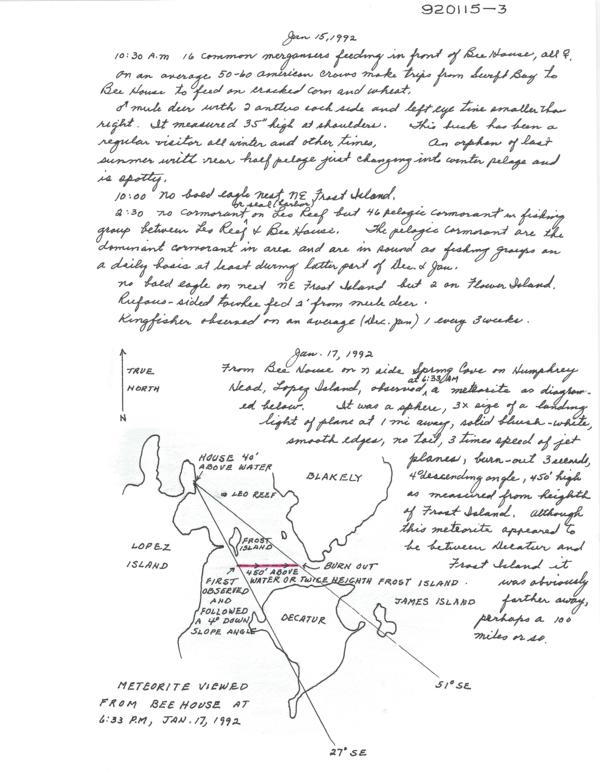 920115-3
Jan 15, 1992
10:30 A.M 16 common mergansers feeding in front of Bee House, all ♀.
On an average 50-60 american crows make trips from Swift Bay to
Bee House to feed on cracked corn and wheat.
♂ mule deer with 2 antlers each side and left eye tine smaller than
right. It measured 35" high at shoulders. This buck has been a
regular visitor all winter and other times, An orphan of last
summer with rear half pelage just changing into winter pelage and
is spotty.
10:00 no bald eagle nest NE Frost Island.
or seal (harbor)
2:30 no cormorant on Leo Reef but 46 pelagic cormorant in fishing
group between Leo Reef & Bee House. The pelagic cormorant are the
dominant cormorant in area and are in sound as fishing groups on
a daily basis at least during latter part of Dec. & Jan.
no bald eagle on nest NE Frost Island but 2 on Flower Island.
Rufous-sided towhee fed 2' from mule deer.
Kingfisher observed on an average (Dec. Jan) 1 every 3 weeks.
Jan. 17, 1992
From Bee House on N side Spring Cove on Humphrey
at 6:33 AM
Head, Lopez Island, observed a meteorite as diagram-
ed below. It was a sphere, 3x size of a landing
light of plane at 1 mi away, solid bluish-white,
smooth edges, no tail, 3 times speed of jet
planes, burn-out 3 seconds,
4° descending angle, 450' high
as measured from heighth
of Frost Island. Although
this meteorite appeared to
be between Decatur and
Frost Island it
was obviously
farther away,
perhaps a 100
miles or so.
TRUE
NORTH
N
HOUSE 40'
ABOVE WATER
BLAKELY
LEO REEF
LOPEZ
ISLAND
FROST
ISLAND
BURN OUT
450' ABOVE
WATER OR TWICE HEIGHTH FROST ISLAND.
FIRST
OBSERVED
AND
FOLLOWED
A 4° DOWN
SLOPE ANGLE
JAMES ISLAND
DECATUR
METEORITE VIEWED
FROM BEE HOUSE AT
6:33 P.M, JAN. 17, 1992
51° SE
27° SE